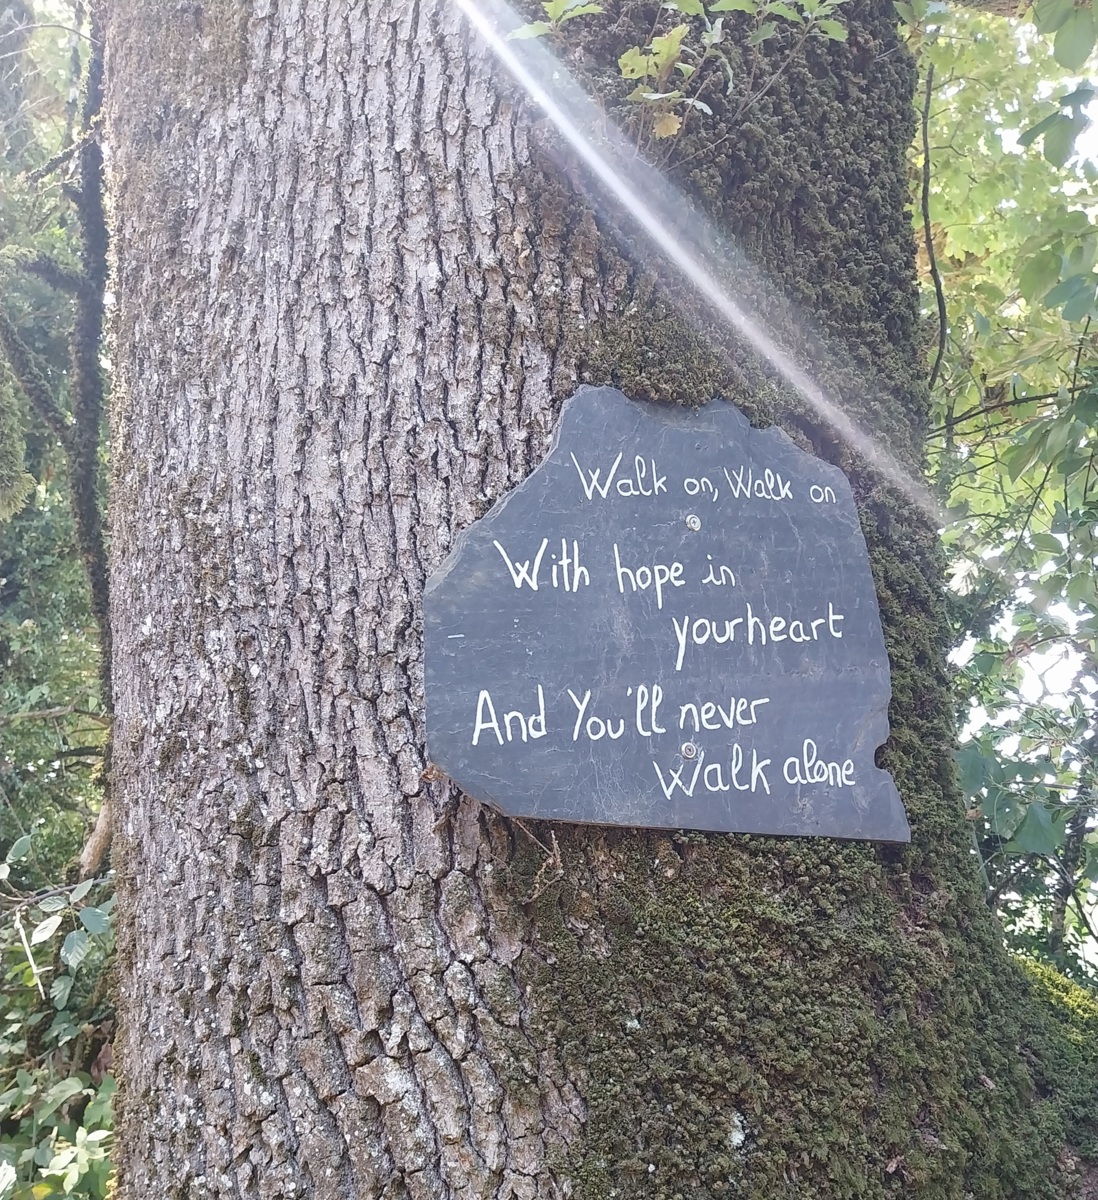 Walk on, Walk on
With hope in
your heart
And You'll never
Walk alone